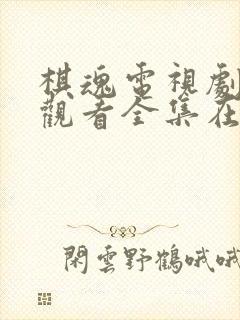 棋魂電視劇
觀看全集在
閑雲野鶴哦哦